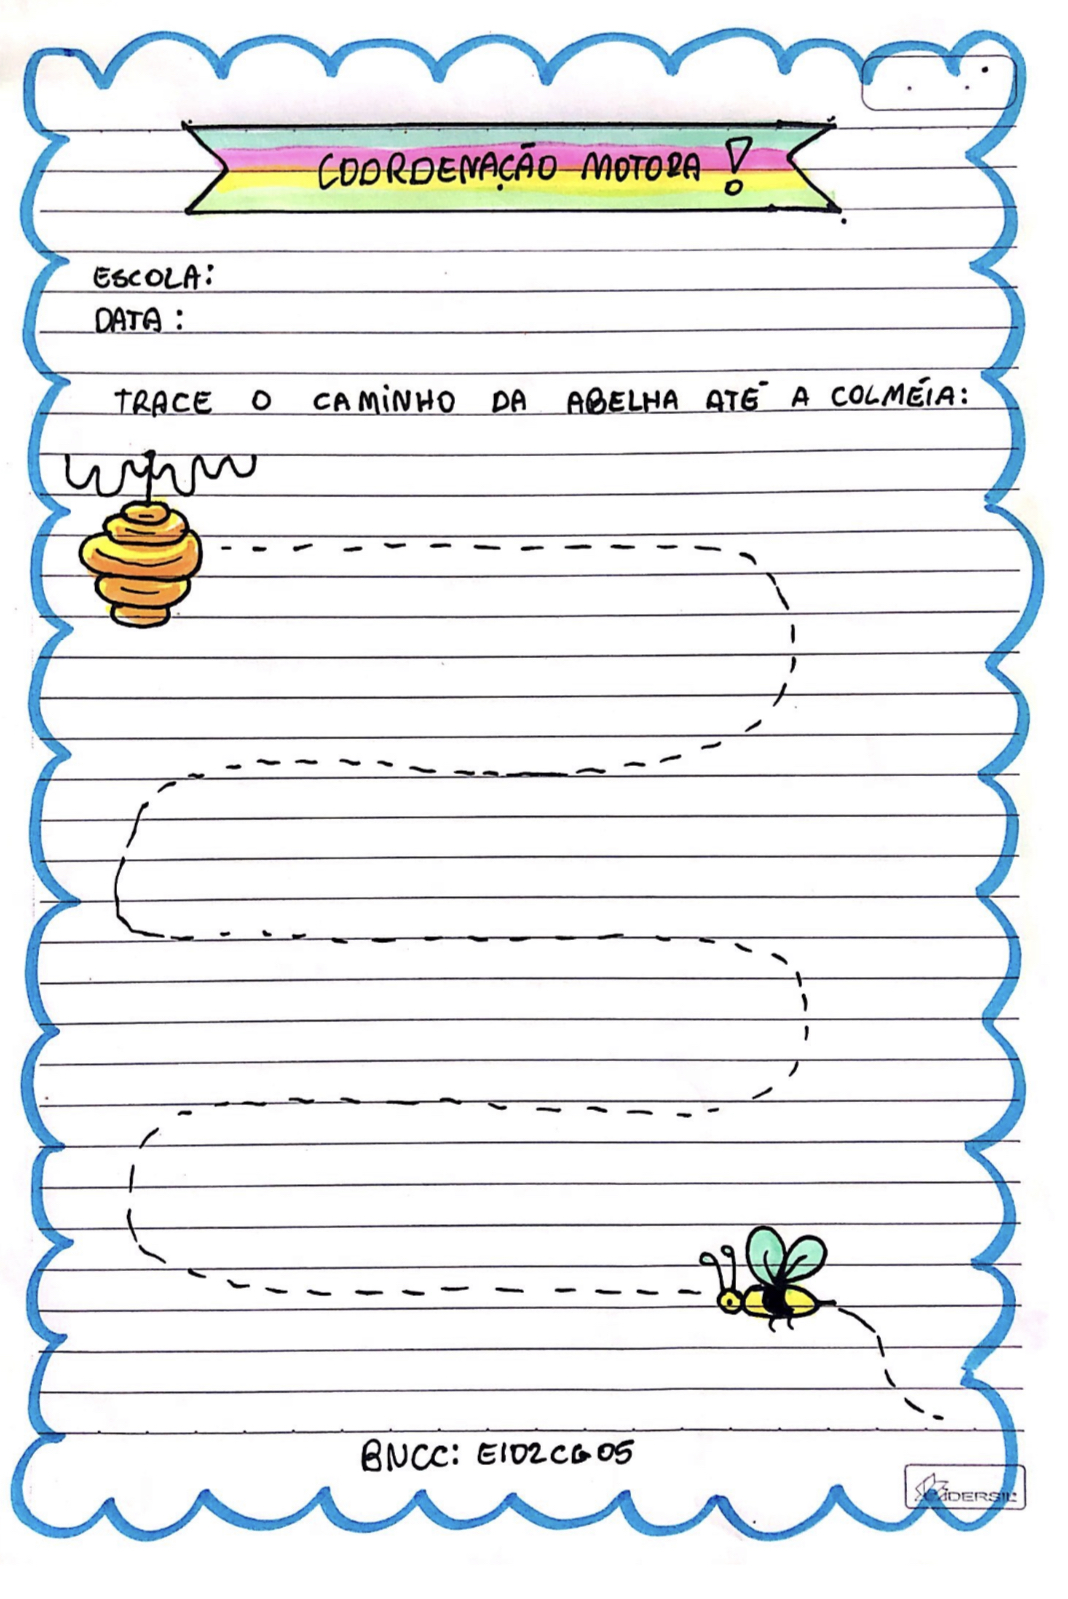 COORDENAÇÃO MOTORA!
ESCOLA:
DATA:
TRACE O CAMINHO DA ABELHA ATÉ A COLMÉIA:
BNCC: EI02CG05